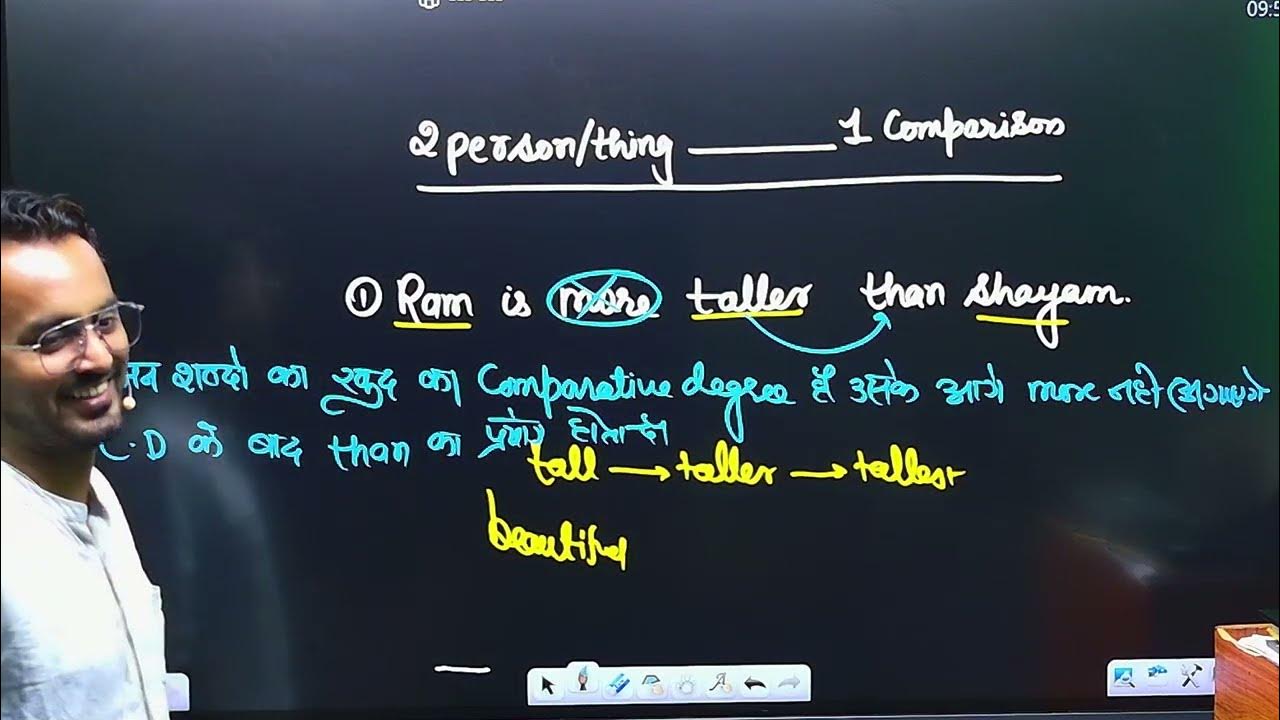 09:5
2 person/thing _____ 1 Comparison
① Ram is more taller than Shayam.
शब्दो का खुद का Comparative degree है उसके आगे more नही लगाएगे
C.D के बाद than का प्रयोग होता है।
tall → taller → tallest
beautiful